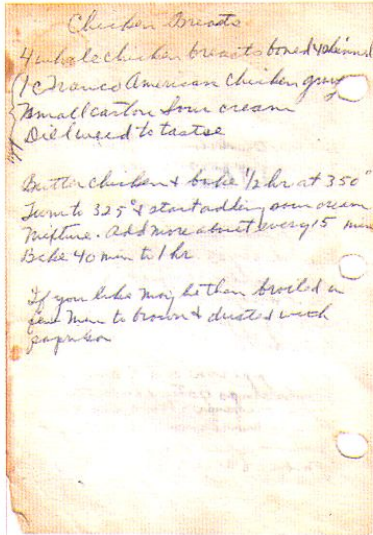 Chicken Breasts
4 whole chicken breasts boned & skinned
1 c Franco American chicken gravy
small carton sour cream
Dillweed to taste

Butter chicken & bake 1/2 hr at 350°
Turn to 325° & start adding sour cream
Mixture. Add more about every 15 min
Bake 40 min to 1 hr

If you like may be then broiled a
few Min to brown & dusted with
paprika